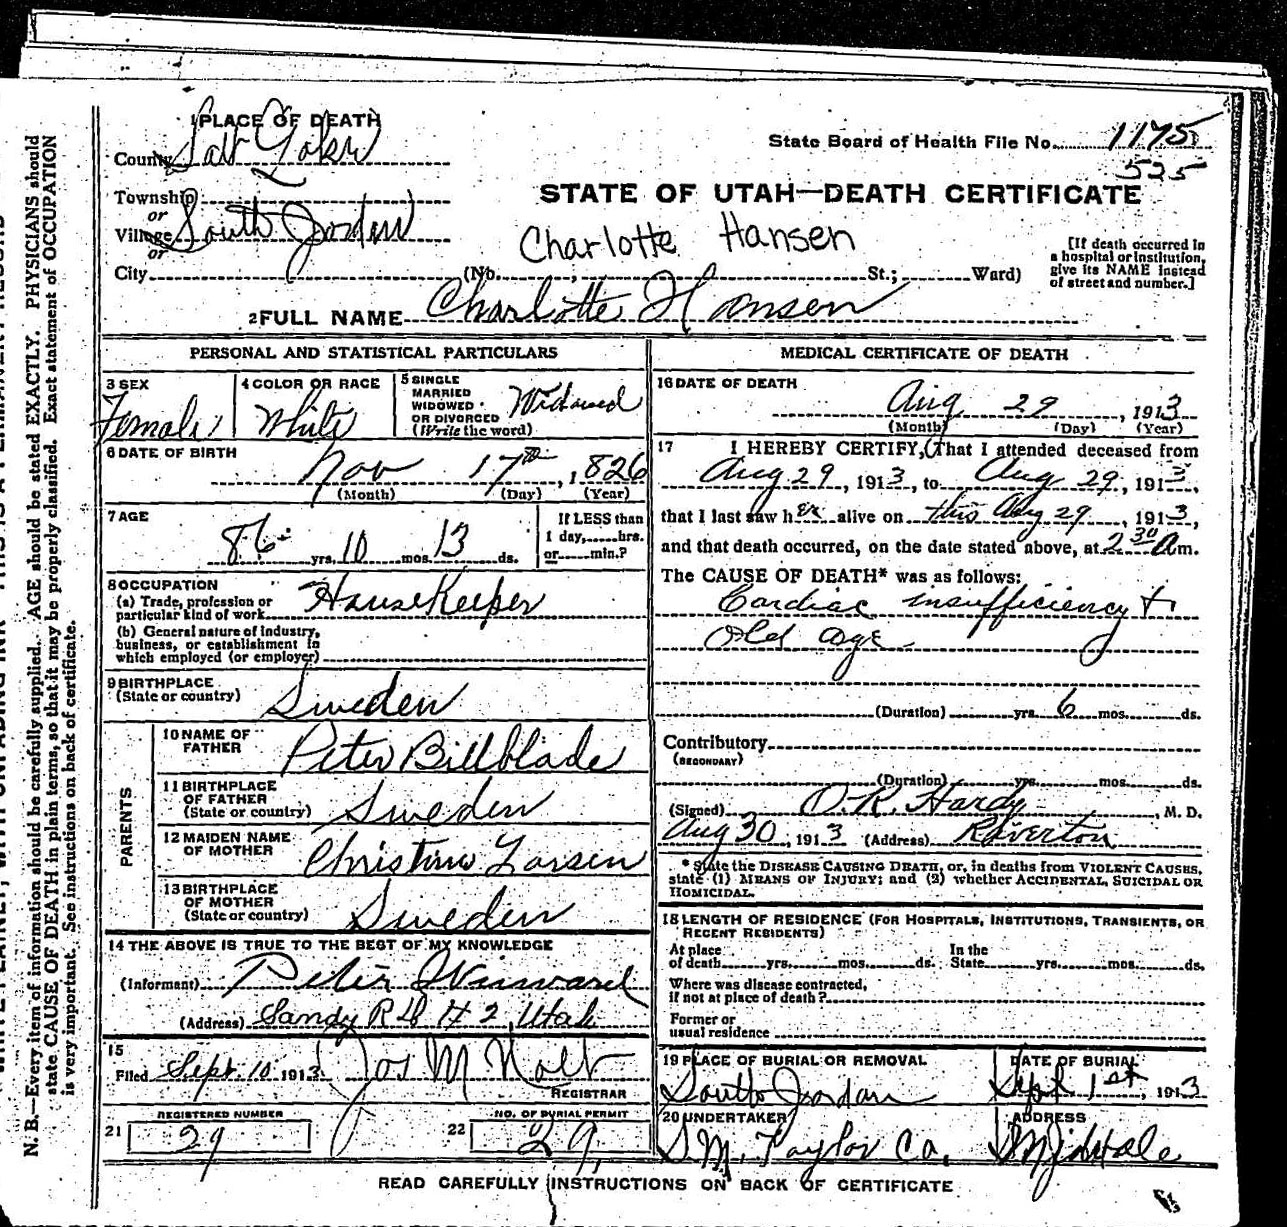 1 PLACE OF DEATH
County Salt Lake
State Board of Health File No. 1175
525
Township
or
Village South Jordan
or
STATE OF UTAH—DEATH CERTIFICATE
Charlotte Hansen
City (No. St.; Ward)
[If death occurred in
a hospital or institution,
give its NAME instead
of street and number.]
2 FULL NAME Charlotte Hansen
PERSONAL AND STATISTICAL PARTICULARS
3 SEX
Female
4 COLOR OR RACE
White
5 SINGLE
MARRIED
WIDOWED
OR DIVORCED
(Write the word)
Widowed
6 DATE OF BIRTH
Nov 17th, 1826
(Month) (Day) (Year)
7 AGE
86 yrs. 10 mos. 13 ds.
If LESS than
1 day, hrs.
or min.?
8 OCCUPATION
(a) Trade, profession or
particular kind of work
HouseKeeper
(b) General nature of Industry,
business, or establishment in
which employed (or employer)
9 BIRTHPLACE
(State or country)
Sweden
PARENTS
10 NAME OF
FATHER
Peter Billblade
11 BIRTHPLACE
OF FATHER
(State or country)
Sweden
12 MAIDEN NAME
OF MOTHER
Christina Larsen
13 BIRTHPLACE
OF MOTHER
(State or country)
Sweden
14 THE ABOVE IS TRUE TO THE BEST OF MY KNOWLEDGE
(Informant) Peter Winward
(Address) Sandy R D # 2, Utah
15
Filed Sept. 10 1913 Jos M Holt
REGISTRAR
REGISTERED NUMBER
21 29
NO. OF BURIAL PERMIT
22 29
MEDICAL CERTIFICATE OF DEATH
16 DATE OF DEATH
Aug 29, 1913
(Month) (Day) (Year)
17 I HEREBY CERTIFY, (That I attended deceased from
Aug 29, 1913, to Aug 29, 1913,
that I last saw her alive on this Aug 29, 1913,
and that death occurred, on the date stated above, at 2 30 A m.
The CAUSE OF DEATH* was as follows:
Cardiac insufficiency +
Old age
(Duration) yrs. 6 mos. ds.
Contributory
(SECONDARY)
(Duration) yrs. mos. ds.
(Signed) O.R. Hardy, M. D.
Aug 30, 1913 (Address) Riverton
* State the DISEASE CAUSING DEATH, or, in deaths from VIOLENT CAUSES,
state (1) MEANS OF INJURY; and (2) whether ACCIDENTAL, SUICIDAL OR
HOMICIDAL.
18 LENGTH OF RESIDENCE (FOR HOSPITALS, INSTITUTIONS, TRANSIENTS, OR
RECENT RESIDENTS)
At place In the
of death yrs. mos. ds. State yrs. mos. ds.
Where was disease contracted,
if not at place of death?
Former or
usual residence
19 PLACE OF BURIAL OR REMOVAL
South Jordan
DATE OF BURIAL
Sept 1st, 1913
20 UNDERTAKER
S.M. Taylor Co.
ADDRESS
Midvale
READ CAREFULLY INSTRUCTIONS ON BACK OF CERTIFICATE
N. B.—Every item of information should be carefully supplied. AGE should be stated EXACTLY. PHYSICIANS should
state CAUSE OF DEATH in plain terms, so that it may be properly classified. Exact statement of OCCUPATION
is very important. See instructions on back of certificate.